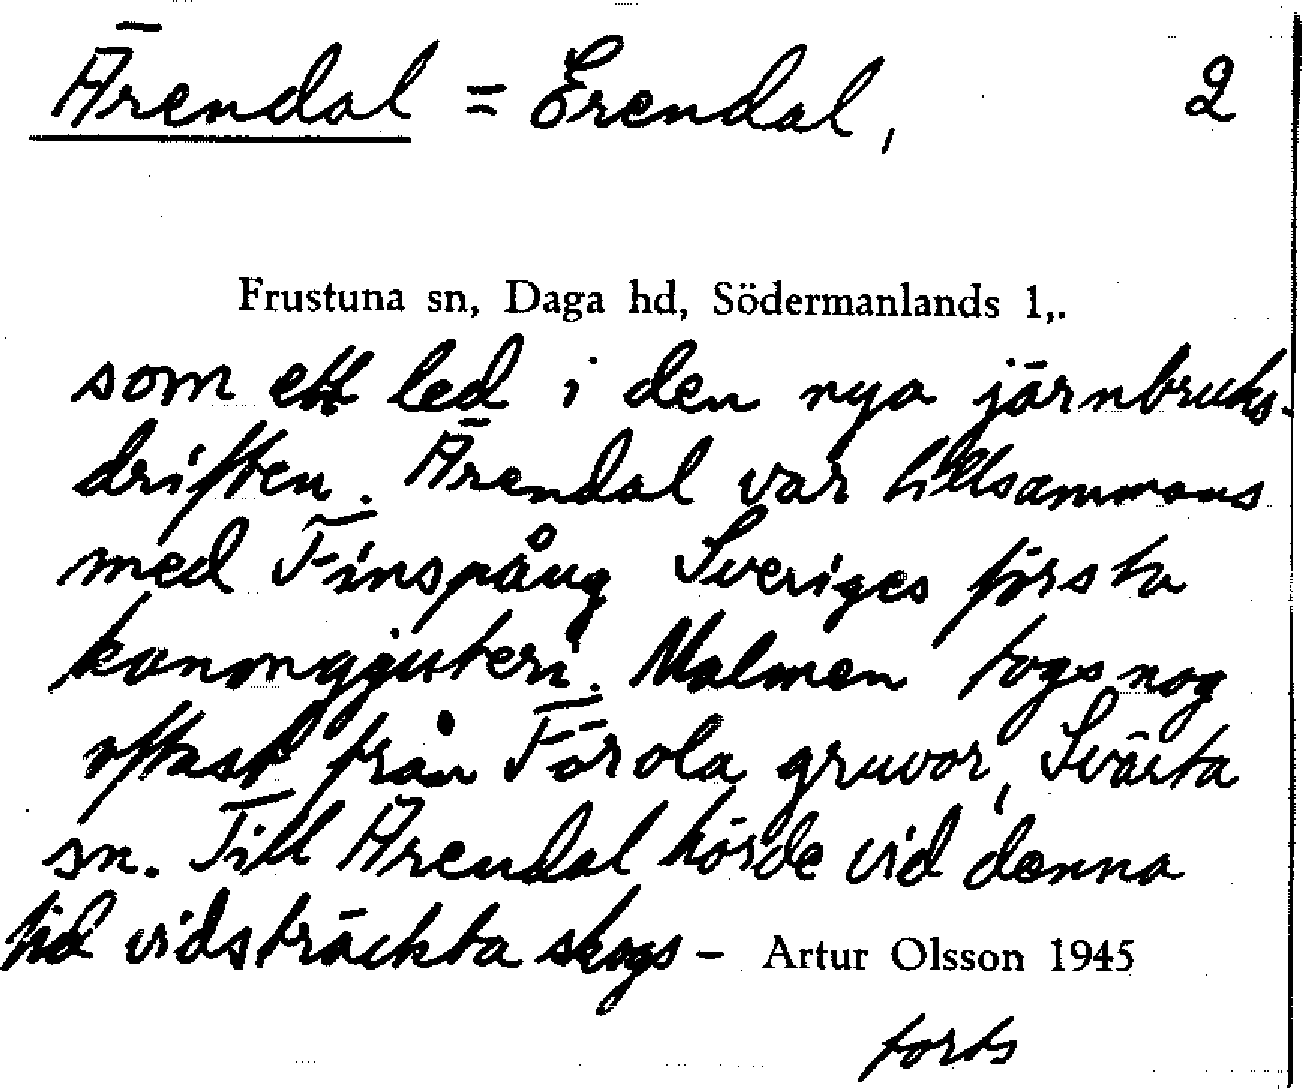 Ärendal = Erendal, 2
Frustuna sn, Daga hd, Södermanlands l,.
som ett led i den nya järnbruks-
driften. Ärendal var tillsammans
med Finspång Sveriges första
kanongjuteri. Malmen togs nog
oftast från Förola gruvor, Svärta
sn. Till Ärendal hörde vid denna
tid vidsträckta skogs - Artur Olsson 1945
forts